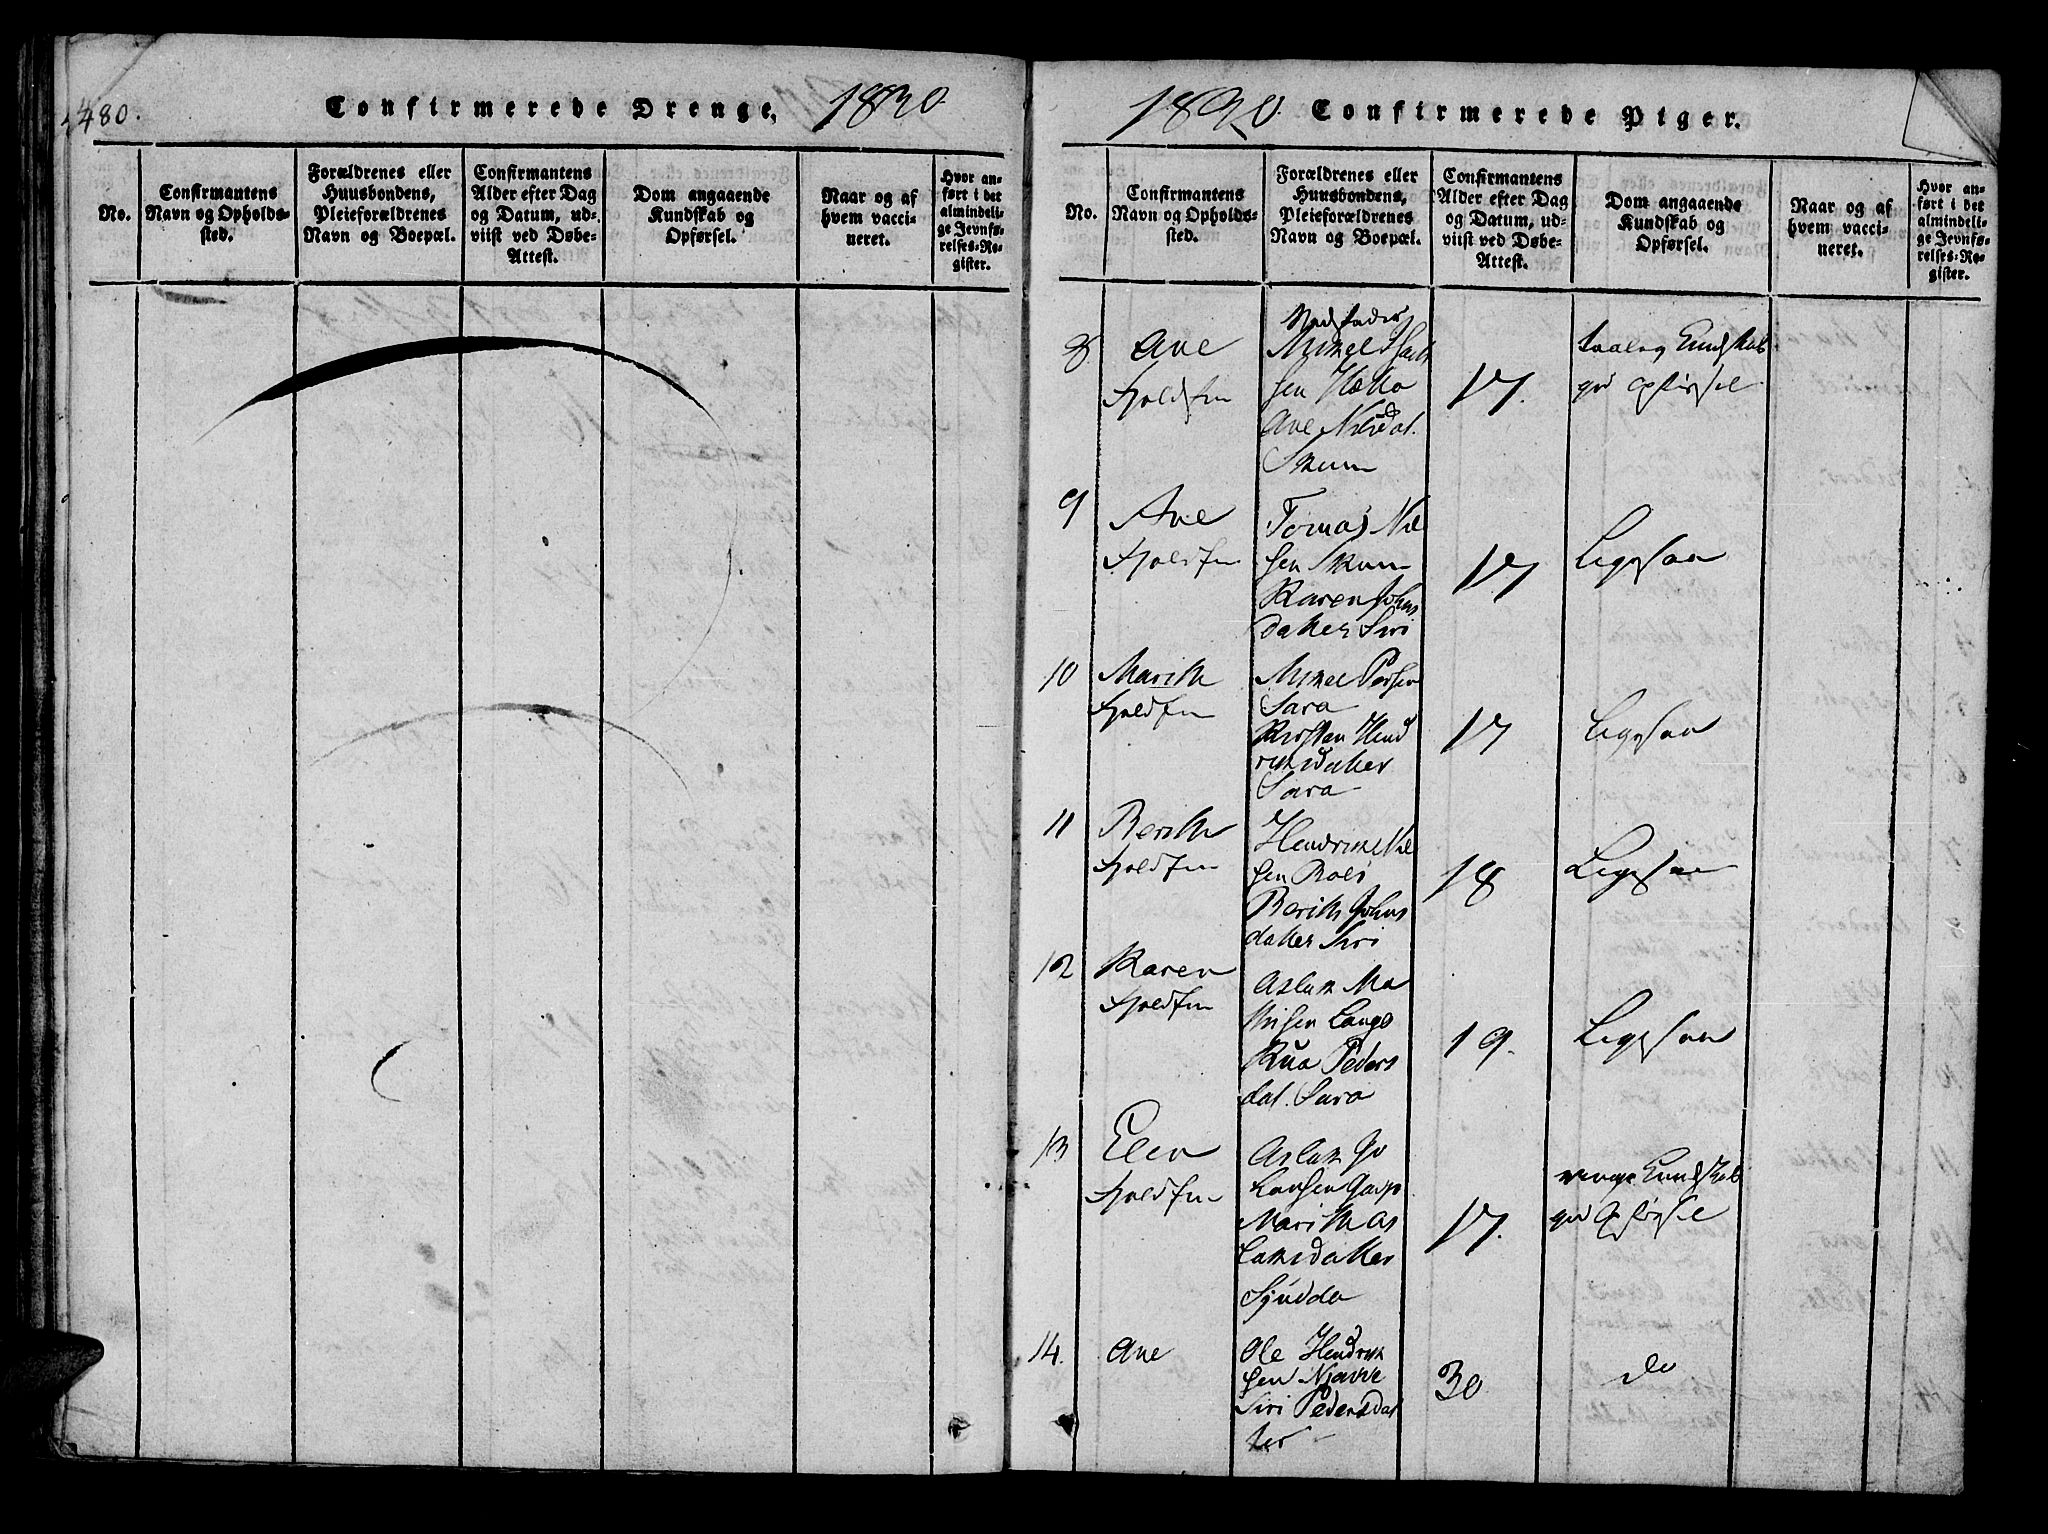 480.
Confirmerede Drenge, 1830
No.
Confirmantens
Navn og Opholds-
sted.
Forældrenes eller
Huusbondens,
Pleieforældrenes
Navn og Boepæl.
Confirmantens
Alder efter Dag
og Datum, ud-
viist ved Døbe-
Attest.
Dom angaaende
Kundskab og
Opførsel.
Naar og af
hvem vacci-
neret.
Hvor an-
ført i det
almindeli-
ge Jevnfø-
relses-Re-
gister.
1830. Confirmerede Piger.
No.
Confirmantens
Navn og Opholds-
sted.
Forældrenes eller
Huusbondens,
Pleieforældrenes
Navn og Boepæl.
Confirmantens
Alder efter Dag
og Datum, ud-
viist ved Døbe-
Attest.
Dom angaaende
Kundskab og
Opførsel.
Naar og af
hvem vacci-
neret.
Hvor an-
ført i det
almindeli-
ge Jevnfø-
relses-Re-
gister.
8.
Ane
Fjeldfin
Mikel
sen
Ane
Skum
17.
Kundskab
god opførsel
9
Ane
Fjeldfin
Tomas Nil
sen Skum
Karen Johns
datter Siri
17
Ligesaa
10
Marith
Fjeldfin
Mikel Persen
Sara
Kirsten Hend
riksdatter
Sara
17
Ligesaa
11
Berith
Fjeldfin
Hendrik Nil
sen
Berith Johns
datter Siri
18
Ligesaa
12
Karen
Fjeldfin
Aslak Ma
thisen Lango
Peders
dat. Sara
19.
Ligesaa
13
Elen
Fjeldfin
Aslak Jo
hansen
Marith As
laksdatter
17.
ringe Kundskab
god Opførsel
14.
Ane
Ole Hendrik
sen
Siri Pedersdat
ter
30
do